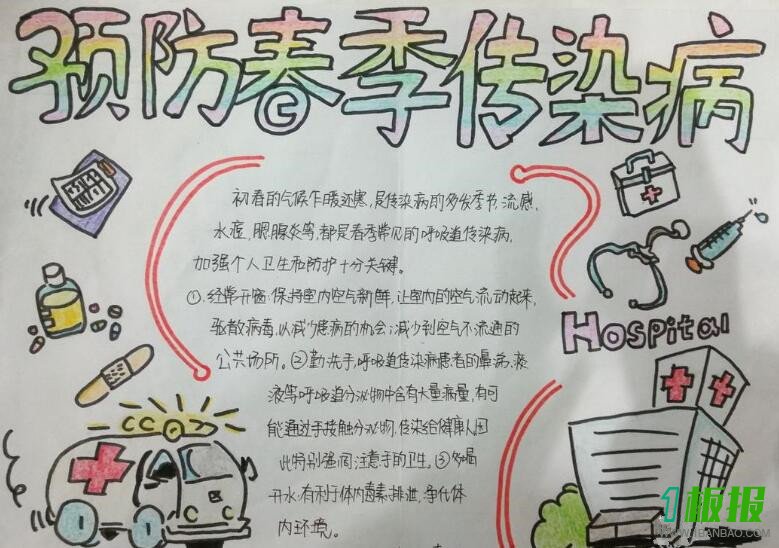 预防春季传染病
初春的气候乍暖还寒,是传染病的多发季节,流感,
水痘,眼腺炎等,都是春季常见的呼吸道传染病,
加强个人卫生和防护十分关键。
①.经常开窗:保持室内空气新鲜,让室内的空气流动起来,
驱散病毒,以减少患病的机会;减少到空气不流通的
公共场所。②勤洗手,呼吸道传染病患者的鼻涕,痰
液等呼吸道分泌物中含有大量病量,有可
能通过手接触分泌物,传染给健康人因
此特别强调注意手的卫生。③多喝
开水:有利于体内毒素排泄,净化体
内环境。
Hospital
1板报
WWW.1BANBAO.COM